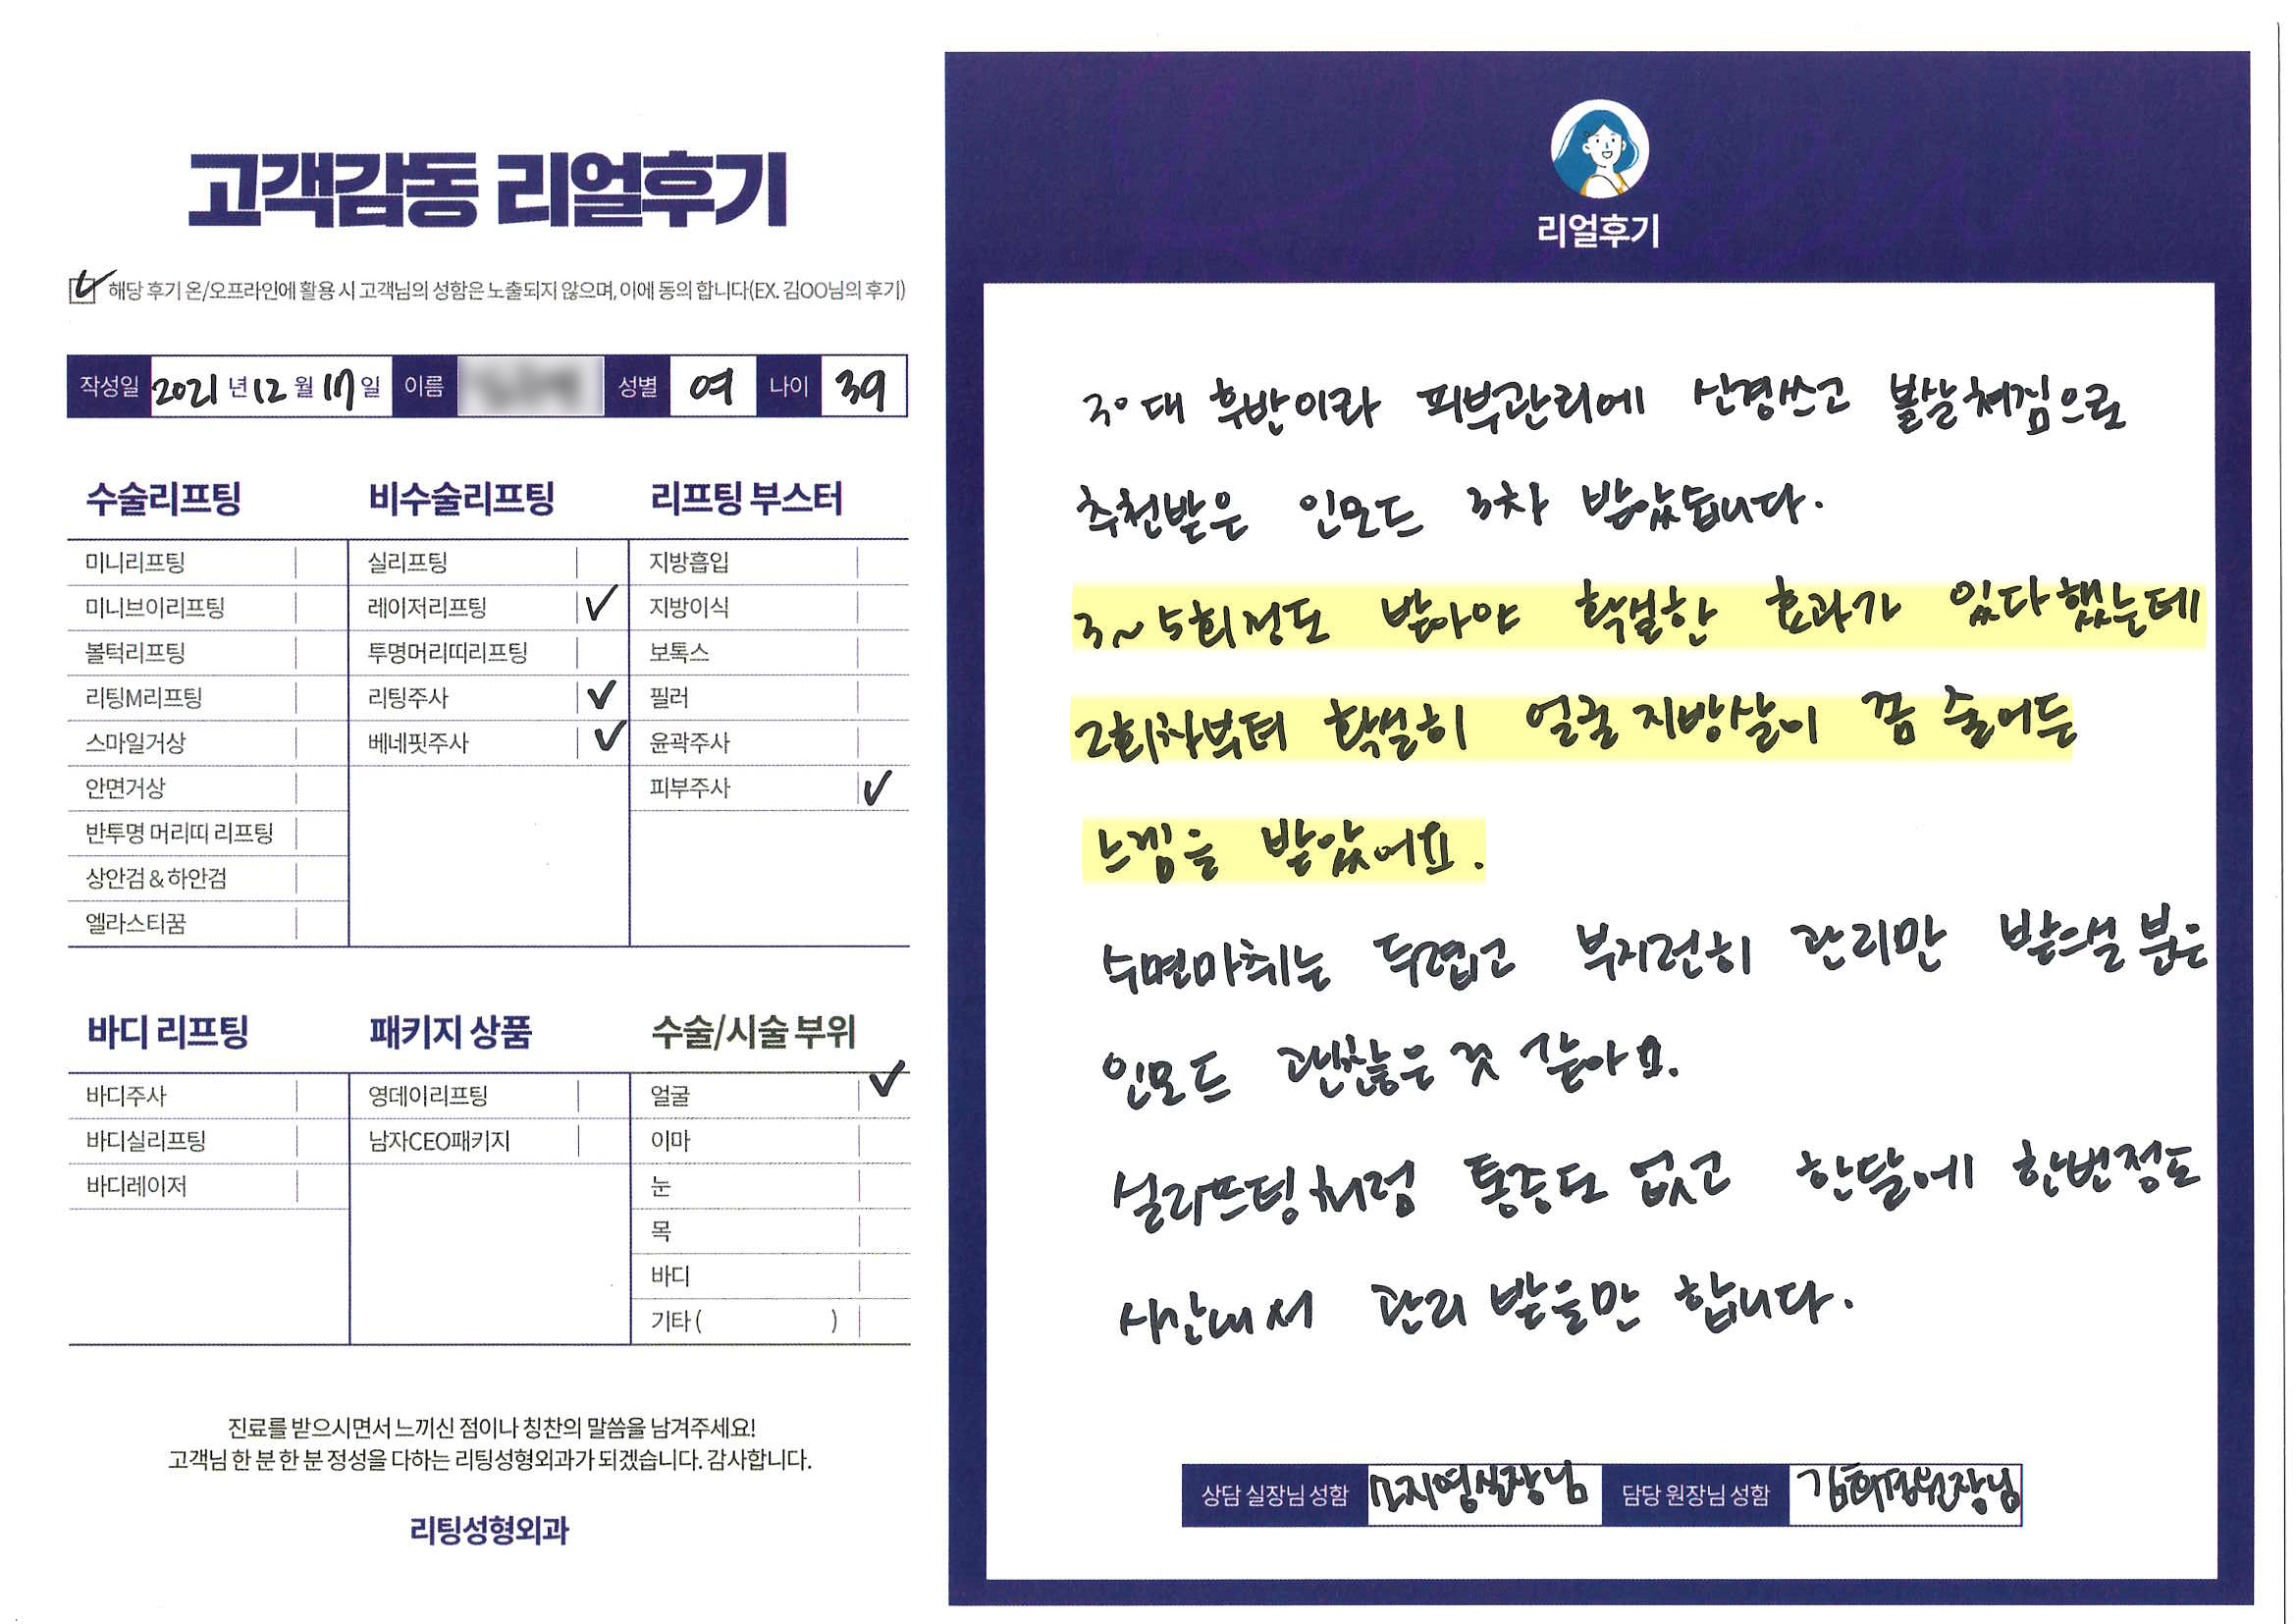 고객감동 리얼후기
해당 후기 온/오프라인에 활용 시 고객님의 성함은 노출되지 않으며, 이에 동의 합니다(EX. 김OO님의 후기)
작성일 2021 년 12 월 17 일 이름 성별 여 나이 39
수술리프팅
미니리프팅
미니브이리프팅
볼턱리프팅
리팅M리프팅
스마일거상
안면거상
반투명 머리띠 리프팅
상안검 & 하안검
엘라스티꿈
비수술리프팅
실리프팅
레이저리프팅
투명머리띠리프팅
리팅주사
베네핏주사
리프팅 부스터
지방흡입
지방이식
보톡스
필러
윤곽주사
피부주사
바디 리프팅
바디주사
바디실리프팅
바디레이저
패키지 상품
영데이리프팅
남자CEO패키지
수술/시술 부위
얼굴
이마
눈
목
바디
기타 ( )
진료를 받으시면서 느끼신 점이나 칭찬의 말씀을 남겨주세요!
고객님 한 분 한 분 정성을 다하는 리팅성형외과가 되겠습니다. 감사합니다.
리팅성형외과
리얼후기
30대 후반이라 피부관리에 신경쓰고 볼살쳐짐으로
추천받은 인모드 3차 받았습니다.
3~5회정도 받아야 확실한 효과가 있다했는데
2회차부터 확실히 얼굴 지방살이 쫌 줄어든
느낌을 받았어요.
수면마취는 두렵고 부지런히 관리만 받으실 분은
인모드 괜찮은 것 같아요.
실리프팅처럼 통증도 없고 한달에 한번정도
시간내서 관리 받을만 합니다.
상담 실장님 성함 지영실장님 담당 원장님 성함 원장님